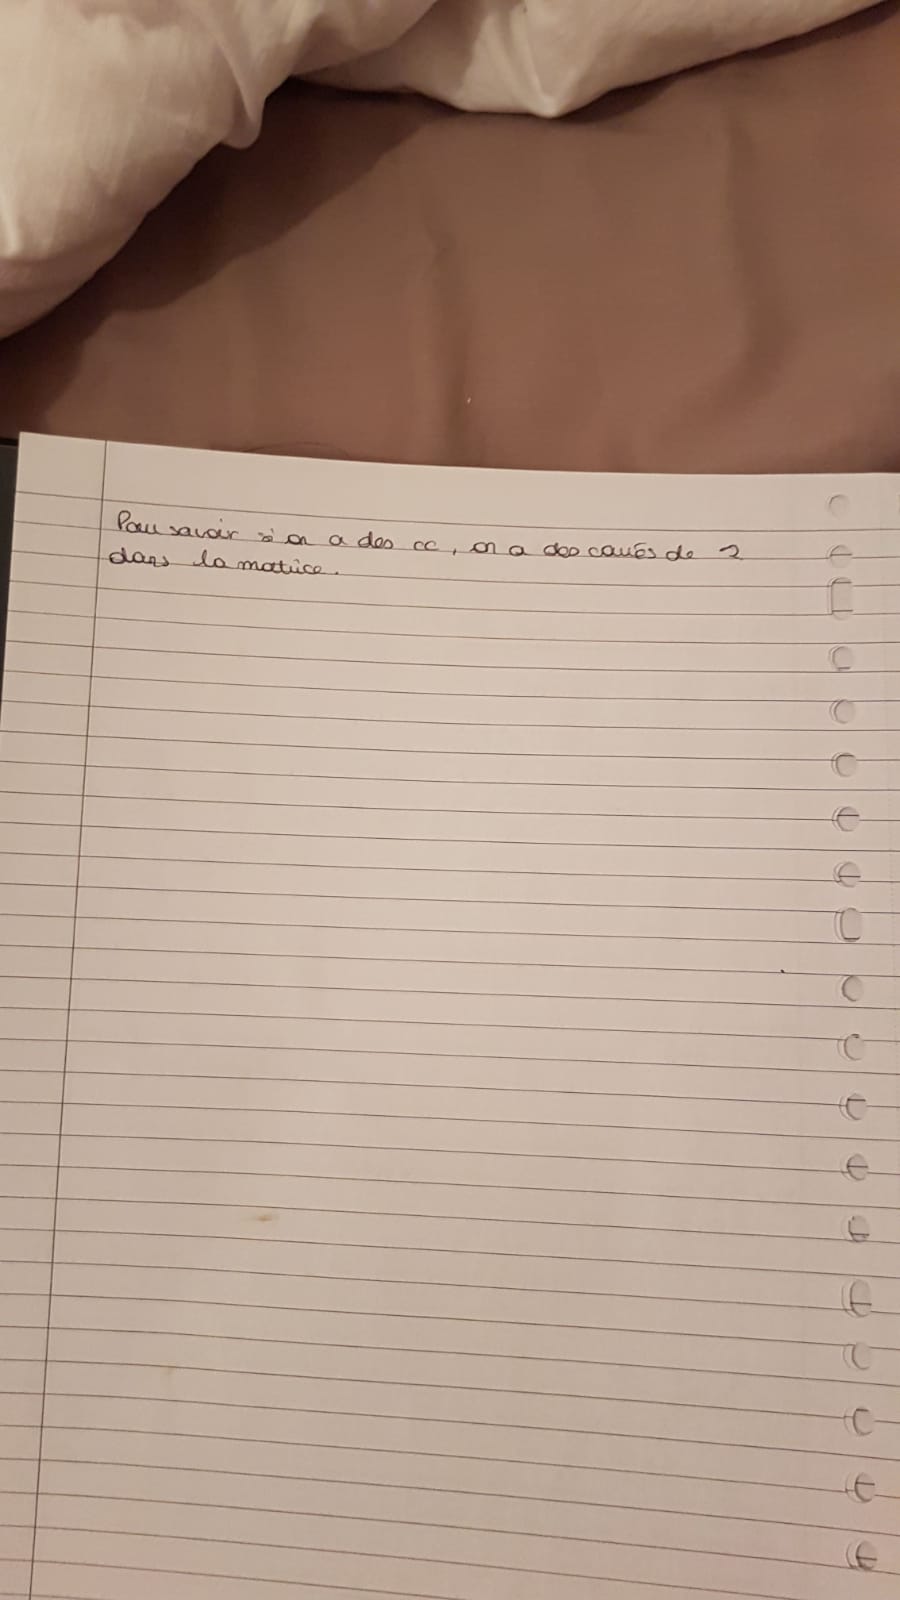 Pour savoir si on a des cc, on a des carrés de 2
dans la matrice.